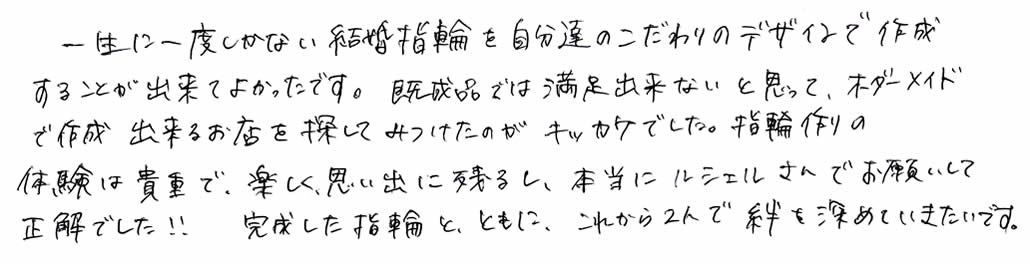 一生に一度しかない結婚指輪を自分達のこだわりのデザインで作成
することが出来てよかったです。既成品では満足出来ないと思って、オーダーメイド
で作成出来るお店を探してみつけたのがキッカケでした。指輪作りの
体験は貴重で、楽しく、思い出に残るし、本当にルシェルさんでお願いして
正解でした!! 完成した指輪と、ともに、これから2人で絆を深めていきたいです。